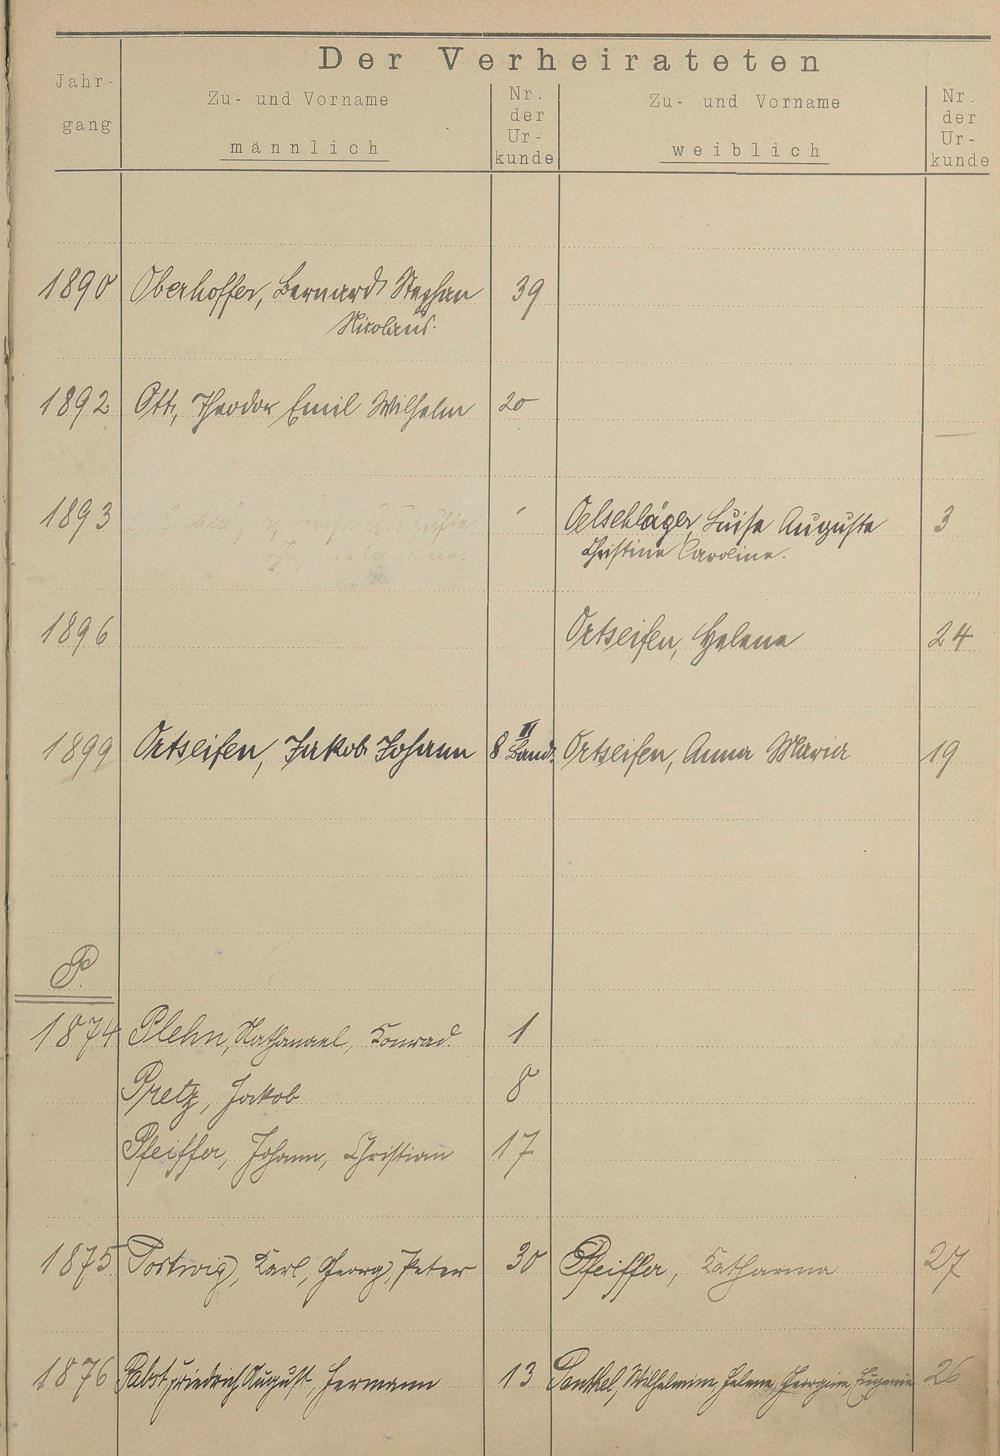 Der Verheirateten
Jahr-
gang
Zu- und Vorname
männlich
Nr.
der
Ur-
kunde
Zu- und Vorname
weiblich
Nr.
der
Ur-
kunde
1890 Oberhoffer, Bernard Stephan 39
Nicolaus.
1892 Ott, Theodor Emil Wilhelm 20
1893 Oelschläger, Luise Auguste 3
Christine Caroline.
1896 Ortseifen, Helene 24
II
1899 Ortseifen, Jakob Johann 8 Band. Ortseifen, Anna Maria 19
P.
1874 Plehn, Nathanael, Konrad. 1
Pretz, Jakob 8
Pfeiffer, Johann, Christian 17
1875 Portwig, Karl, Georg, Peter 30 Pfeiffer, Katharina 27
1876 Pabst, Friedrich August, Hermann 13 Penthel, Wilhelmine, Helene, Georgine, Eugenie 26